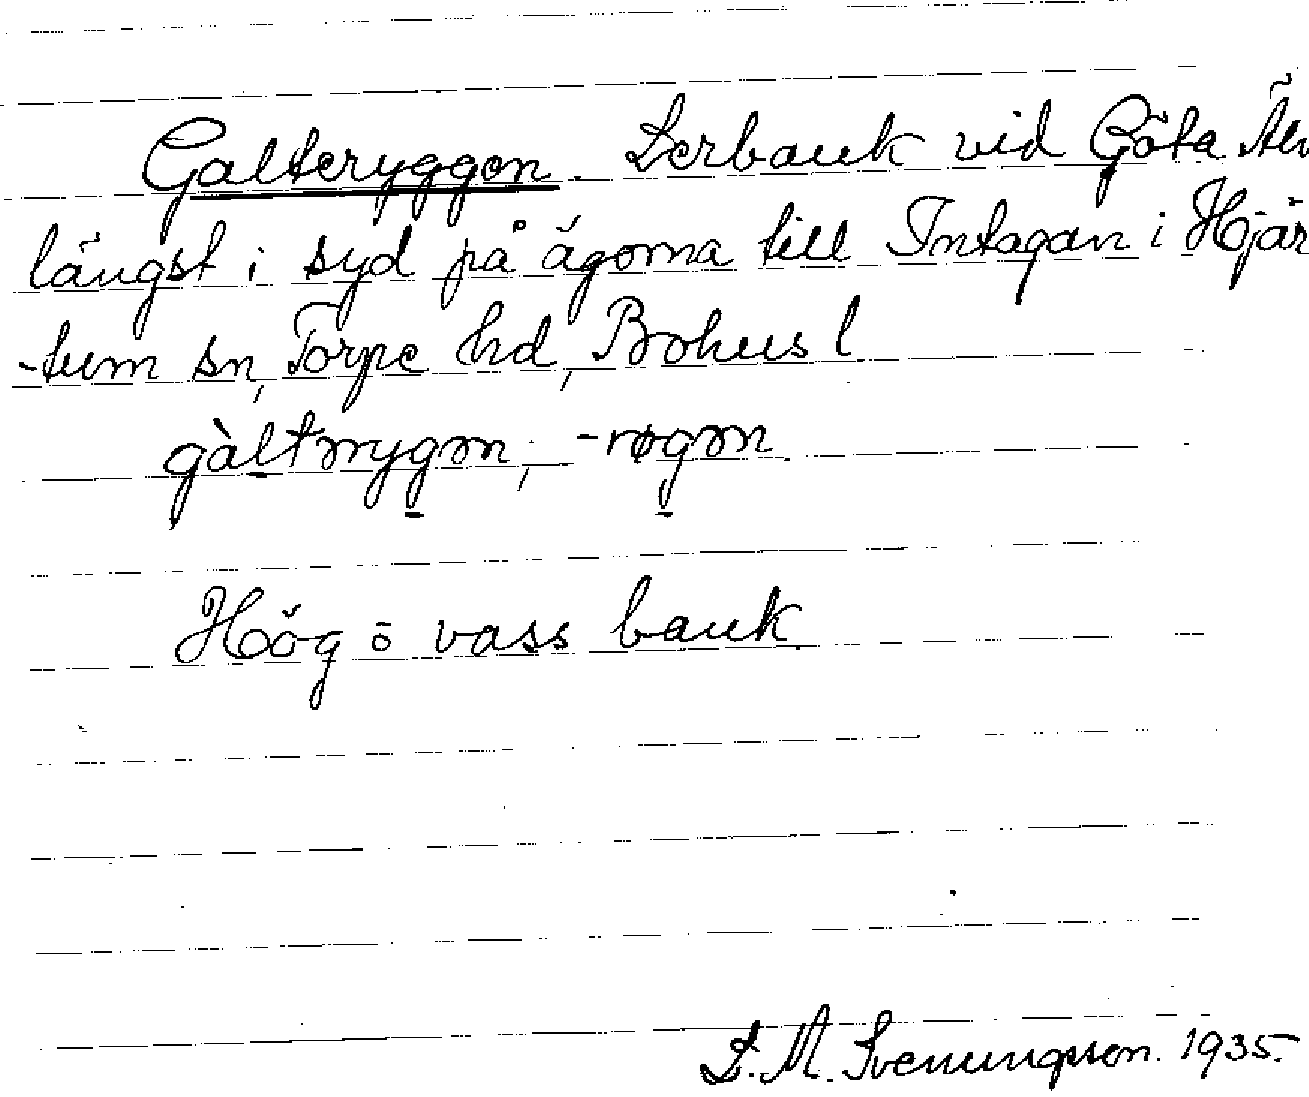 Galteryggen. Lerbank vid Göta Älv
längst i syd på ägorna till Intagan i Hjär
-tum sn, Torpe hd, Bohus l
gàltərygən, -røgən
Hög o vass bank
S. M. Svenungsson. 1935.